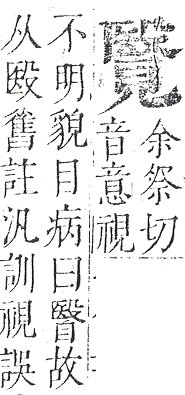 余祭切
音意視
不明貌目病曰瞖故
从殹舊註汎訓視誤